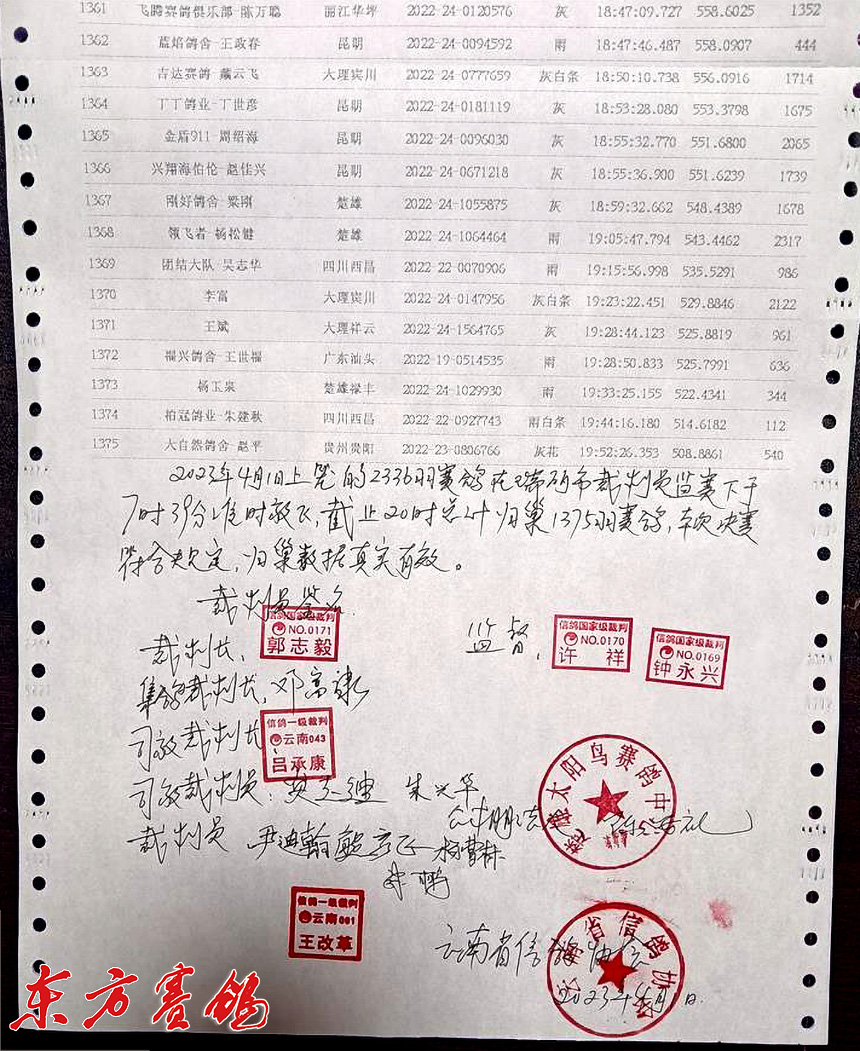 1361 飞腾赛鸽俱乐部-陈万聪 丽江华坪 2022-24-0120576 灰 18:47:09.727 558.6025 1352
1362 蓝焰鸽舍-王政春 昆明 2022-24-0094592 雨 18:47:46.487 558.0907 444
1363 吉达赛鸽-戴云飞 大理宾川 2022-24-0777659 灰白条 18:50:10.738 556.0916 1714
1364 丁丁鸽业-丁世彦 昆明 2022-24-0181119 灰 18:53:28.080 553.3798 1675
1365 金盾911-周绍海 昆明 2022-24-0096030 雨 18:55:32.770 551.6800 2065
1366 兴翔海伯伦-赵佳兴 昆明 2022-24-0671218 灰 18:55:36.900 551.6239 1739
1367 刚好鸽舍-梁刚 楚雄 2022-24-1055875 灰 18:59:32.662 548.4389 1678
1368 领飞者-杨松健 楚雄 2022-24-1064464 雨 19:05:47.794 543.4462 2317
1369 团结大队-吴志华 四川西昌 2022-22-0070906 雨 19:15:56.998 535.5291 986
1370 李富 大理宾川 2022-24-0147956 灰白条 19:23:22.451 529.8846 2122
1371 王斌 大理祥云 2022-24-1564765 灰 19:28:44.123 525.8819 961
1372 福兴鸽舍-王世福 广东汕头 2022-19-0514535 雨 19:28:50.833 525.7991 636
1373 杨玉泉 楚雄禄丰 2022-24-1029930 雨 19:33:25.155 522.4341 344
1374 柏冠鸽业-朱建秋 四川西昌 2022-22-0927743 雨白条 19:44:16.180 514.6182 112
1375 大自然鸽舍-赵平 贵州贵阳 2022-23-0806766 灰花 19:52:26.353 508.8861 540
2023年4月1日上笼的2336羽赛鸽在瑞丽市裁判员监赛下于
7时39分准时放飞,截止20时总计归巢1375羽赛鸽,本次决赛
符合规定,归巢数据真实有效。
裁判员签名
裁判长,
信鸽国家级裁判
NO.0171
郭志毅
监督,
信鸽国家级裁判
NO.0170
许祥
信鸽国家级裁判
NO.0169
钟永兴
集鸽裁判长,
司放裁判长,
信鸽一级裁判
云南043
吕承康
司放裁判员: 朱兴华
裁判员
太阳鸟赛鸽中
信鸽一级裁判
云南001
王改革
云南省信鸽协会
2023年4月1日.
东方赛鸽